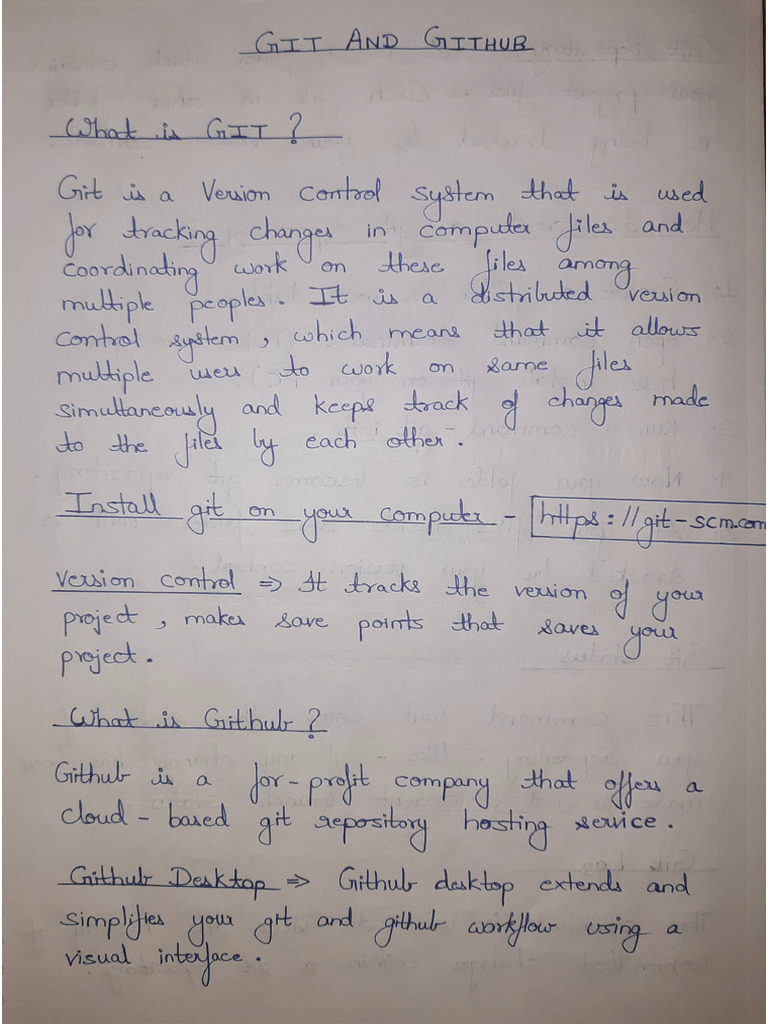 GIT AND GITHUB
What is GIT ?
Git is a Version control system that is used
for tracking changes in computer files and
coordinating work on these files among
multiple peoples. It is a distributed version
control system, which means that it allows
multiple users to work on same files
simultaneously and keeps track of changes made
to the files by each other.
Install git on your computer - https://git-scm.com
Version control ⇒ It tracks the version of your
project, makes save points that saves your
project.
What is Github ?
Github is a for-profit company that offers a
cloud-based git repository hosting service.
Github Desktop ⇒ Github desktop extends and
simplifies your git and github workflow using a
visual interface.